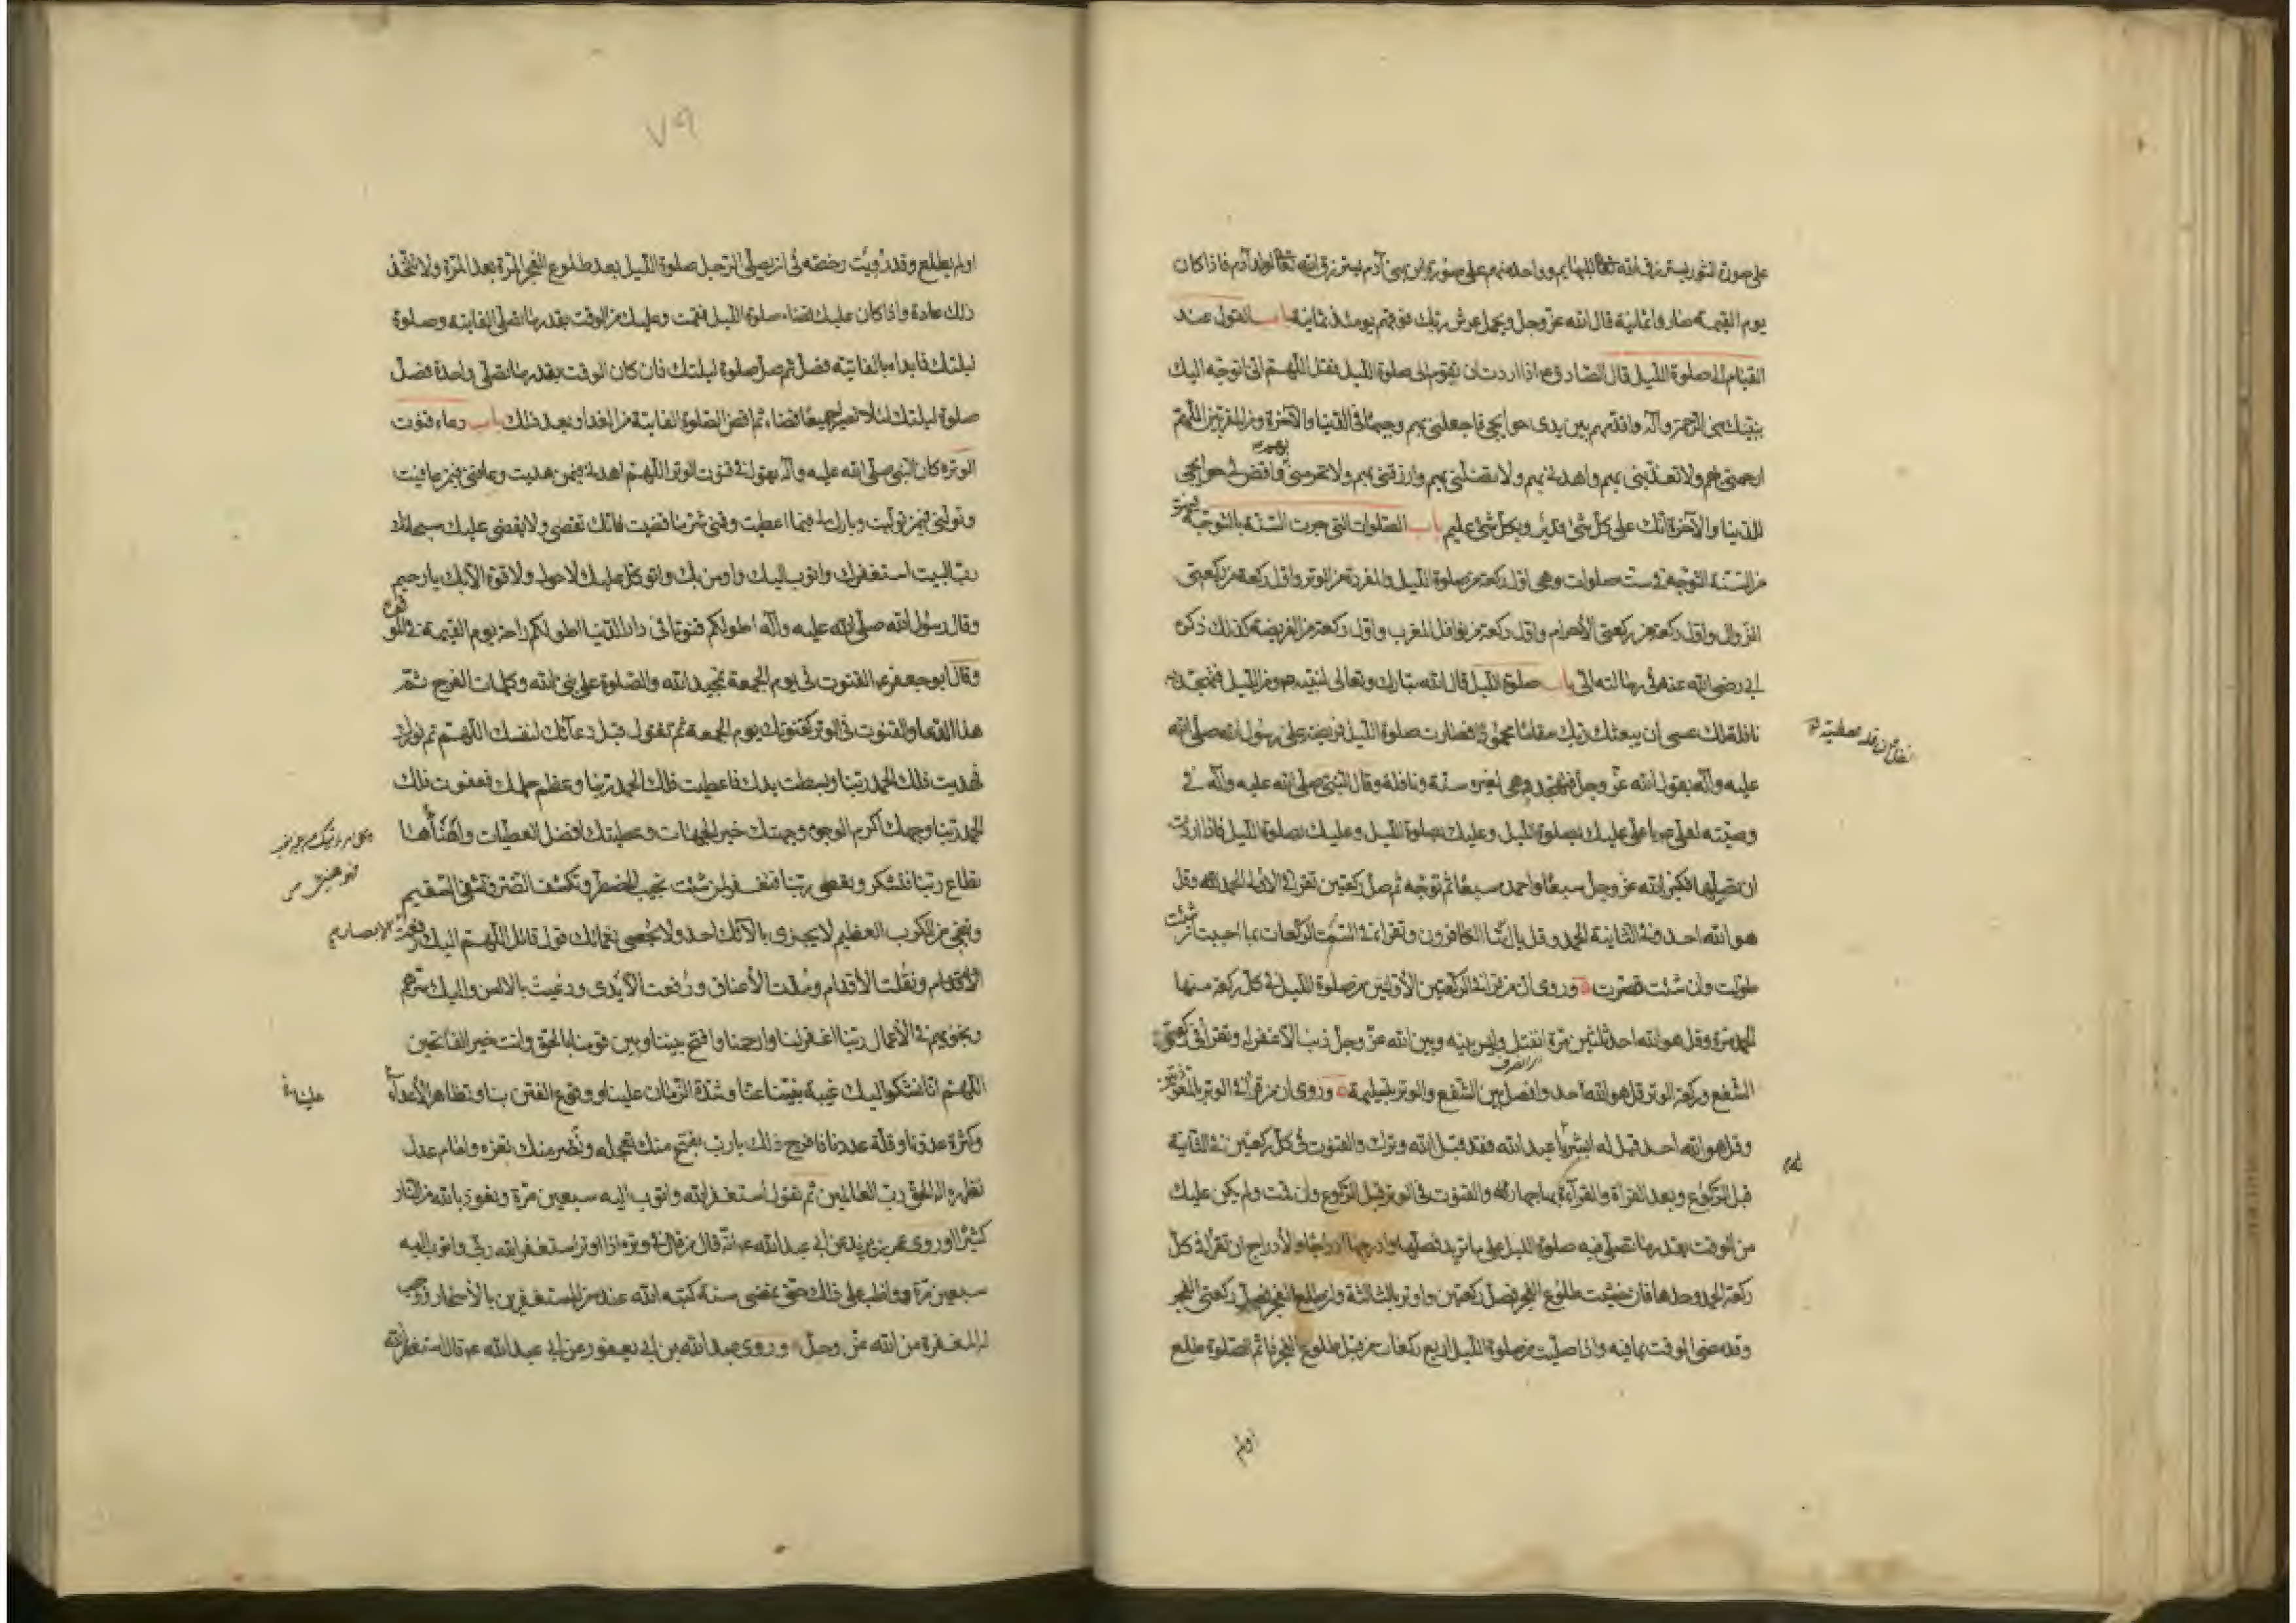 على صورة الثور يسترزق الله تعالى للبهايم وواحد منهم على صورة ابن بنى آدم يسترزق الله تعالى لولد آدم فاذا كان
يوم القيمة صاروا ثمانية قال الله عز وجل ويحمل عرش ربك فوقهم يومئذ ثمانية باب القول عند
القيام الى صلوة الليل قال الصادق ع اذا اردت ان تقوم الى صلوة الليل فقل اللهم انى اتوجه اليك
بنبيك نبى الرحمة وآله واقدمهم بين يدى حوايجى فاجعلنى بهم وجيها فى الدنيا والآخرة ومن المقربين اللهم
ارحمنى بهم ولا تعذبنى بهم واهدنى بهم ولا تضلنى بهم وارزقنى بهم ولا تحرمنى بهم واقض لى حوايجى
للدنيا والآخرة انك على كل شئ قدير وبكل شئ عليم باب الصلوات التى جرت السنة بالتوجه فيهن
من السنة التوجه فى ست صلوات وهى اول ركعة من صلوة الليل والمفردة من الوتر واول ركعة من ركعتى
الزوال واول ركعة من ركعتى الاحرام واول ركعة من نوافل المغرب واول ركعة من الفريضة كذلك ذكره
ابى رضى الله عنه فى رسالته الى باب صلوة الليل قال الله تبارك وتعالى لنبيه ص ومن الليل فتهجد به
نافلة لك عسى ان يبعثك ربك مقاما محمودا فصارت صلوة الليل فريضة على رسول الله صلى الله
عليه وآله بقول الله عز وجل فتهجد وهى لغيره سنة ونافلة وقال النبى صلى الله عليه وآله فى
وصيته لعلى يا على عليك بصلوة الليل وعليك بصلوة الليل وعليك بصلوة الليل فاذا اردت
ان تصليها فكبر الله عز وجل سبعا واحمده سبعا ثم توجه ثم صل ركعتين تقرا فى الاولى الحمد وقل
هو الله احد وفى الثانية الحمد وقل يا ايها الكافرون وتقرا فى الست الركعات بما احببت ان شئت
طولت وان شئت قصرت وروى ان من قرا فى الركعتين الاوليين من صلوة الليل فى كل ركعة منها
الحمد مرة وقل هو الله احد ثلثين مرة انفتل وليس بينه وبين الله عز وجل ذنب الا غفر له وتقرا فى ركعتى
الشفع وركعة الوتر قل هو الله احد وافصل بين الشفع والوتر بتسليمة وروى ان من قرا فى الوتر بالمعوذتين
وقل هو الله احد قيل له ابشر يا عبد الله فقد قبل الله وترك والقنوت فى كل ركعتين فى الثانية
قبل الركوع وبعد القراة والقرآءة بها جهارا والقنوت فى الوتر قبل الركوع وان قمت ولم يكن عليك
من الوقت بقدر ما تصلى فيه صلوة الليل على ما تريد فصلها وادرجها ادراجا والادراج ان تقرا فى كل
ركعة الحمد وحدها فان خشيت طلوع الفجر فصل ركعتين واوتر بالثالثة وان طلع الفجر فصل ركعتى الفجر
وقد مضى الوقت بما فيه واذا صليت من صلوة الليل اربع ركعات من قبل طلوع الفجر فاتم الصلوة طلع
اولم
٧٩
او لم يطلع وقد رويت رخصة فى ان يصلى الرجل صلوة الليل بعد طلوع الفجر المرة بعد المرة ولا تتخذ
ذلك عادة واذا كان عليك قضاء صلوة الليل فقمت وعليك من الوقت بقدر ما تصلى الفايتة وصلوة
ليلتك فابداء بالفايتة فصل ثم صل صلوة ليلتك فان كان الوقت بقدر ما تصلى واحدة فصل
صلوة ليلتك لئلا تصير جميعا قضاء ثم اقض الصلوة الفايتة من الغد او بعد ذلك باب دعاء قنوت
الوتر كان النبى صلى الله عليه وآله يقول فى قنوت الوتر اللهم اهدنى فيمن هديت وعافنى فيمن عافيت
وتولنى فيمن توليت وبارك لى فيما اعطيت وقنى شر ما قضيت فانك تقضى ولا يقضى عليك سبحانك
رب البيت استغفرك واتوب اليك واومن بك واتوكل عليك لا حول ولا قوة الا بك يا رحيم
وقال رسول الله صلى الله عليه وآله اطولكم قنوتا فى دار الدنيا اطولكم راحة يوم القيمة فى الموقف
وقال ابو جعفر ع القنوت فى يوم الجمعة تمجيد الله والصلوة على نبى الله وكلمات الفرج ثم
هذا الدعا والقنوت فى الوتر كقنوتك يوم الجمعة ثم تقول قبل دعائك لنفسك اللهم تم نورك
فهديت فلك الحمد ربنا وبسطت يدك فاعطيت فلك الحمد ربنا وعظم حلمك فعفوت فلك
الحمد ربنا وجهك اكرم الوجوه وجهتك خير الجهات وعطيتك افضل العطيات واهنأها
تطاع ربنا فتشكر وتعصى ربنا فتغفر لمن شئت تجيب المضطر وتكشف الضر وتشفى السقيم
وتنجى من الكرب العظيم لا يجزى بآلائك احد ولا يحصى نعمائك قول قائل اللهم اليك رفعت الابصار
ونقلت الاقدام ومدت الاعناق ورفعت الايدى ودعيت بالالسن واليك سرهم
ونجويهم فى الاعمال ربنا اغفر لنا وارحمنا وافتح بيننا وبين قومنا بالحق وانت خير الفاتحين
اللهم انا نشكوا اليك غيبة نبينا عنا وشدة الزمان علينا ووقوع الفتن بنا وتظاهر الاعدآء
وكثرة عدونا وقلة عددنا فافرج ذلك يا رب بفتح منك تعجله ونصر منك تعزه وامام عدل
تظهره اله الحق رب العالمين ثم تقول استغفر الله واتوب اليه سبعين مرة وتعوذ بالله من النار
كثيرا وروى عمر بن يزيد عن ابى عبد الله ع انه قال من قال فى وتره اذا اوتر استغفر الله ربى واتوب اليه
سبعين مرة وواظب على ذلك حتى يمضى سنة كتبه الله عنده من المستغفرين بالاسحار ووجبت
له المغفرة من الله عز وجل وروى عبد الله بن ابى يعفور عن ابى عبد الله ع قال استغفر الله
علينا